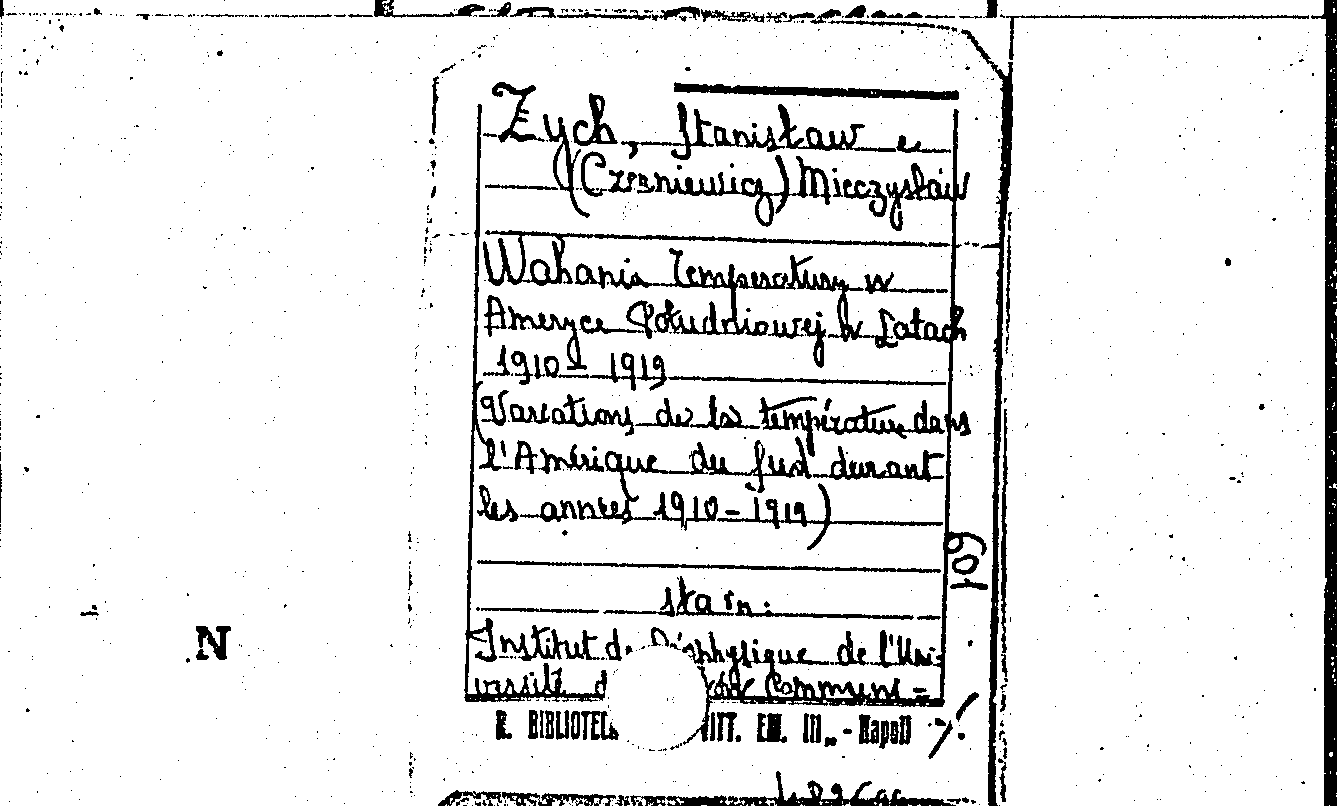 Zych, Stanisław e
(Czerniewicz) Mieczysław
Wahania Temperatury w
Ameryce Południowej w Latach
1910 - 1919
(Variations de la température dans
l'Amérique du Sud durant
les années 1910-1919)
109
Stan:
Institut de Géophysique de l'Uni-
versité Communi=
R. BIBLIOTECA VITT. EM. III. - Napoli
./.
N